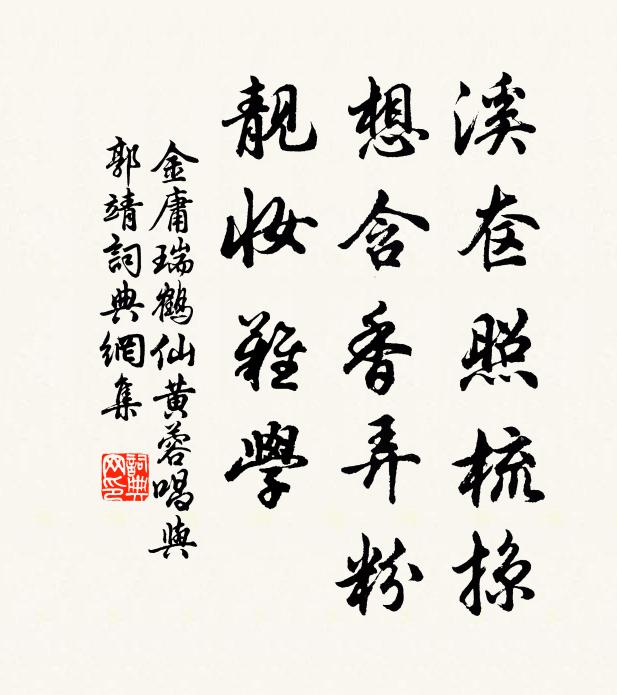 溪奁照梳掠
想含香弄粉
靚妝難學
金庸瑞鶴仙黄蓉唱與
郭靖詞典網集
詞典网印